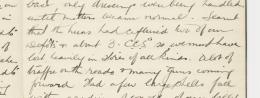 back, only dressing were being handled
until matters became normal. Learnt
that the huns had captured two of our
Depots & about 3 - CCS so we must have
lost heavily in stores of all kinds. A lot of
traffic on the roads & many guns coming
forward. Had a few large shells fall